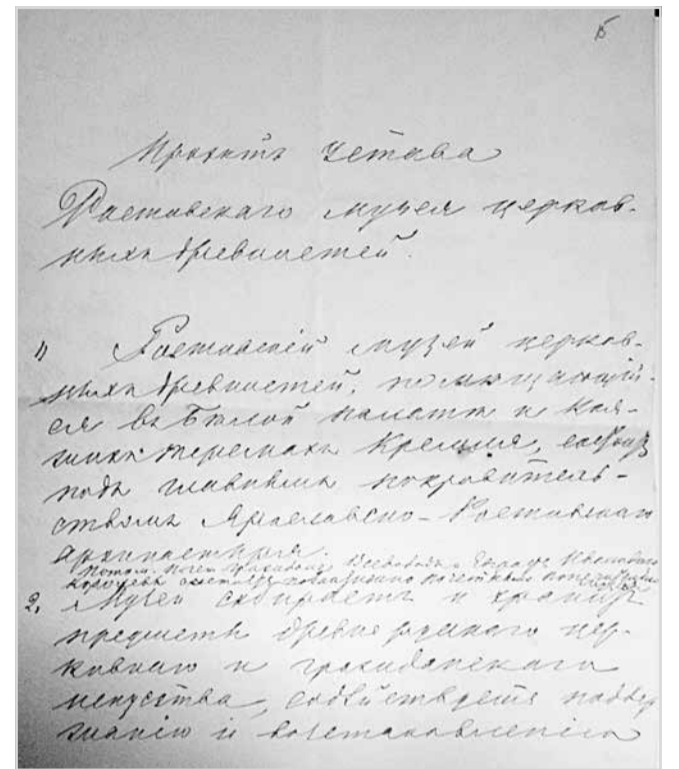 5
Проектъ Устава
Ростовскаго музея церков-
ныхъ древностей.
1) Ростовскій музей церков-
ныхъ древностей, помѣщающій-
ся въ Бѣлой палатѣ и Кня-
жихъ теремахъ Кремля, состоитъ
подъ главнымъ покровитель-
ствомъ Ярославско-Ростовскаго
архипастыря.
Потом. почет. гражданинъ
2. Музей собираетъ и хранитъ
предметы древнерусскаго цер-
ковнаго и гражданскаго
искусства, содѣйствуетъ поддер
жанію и возстановленію